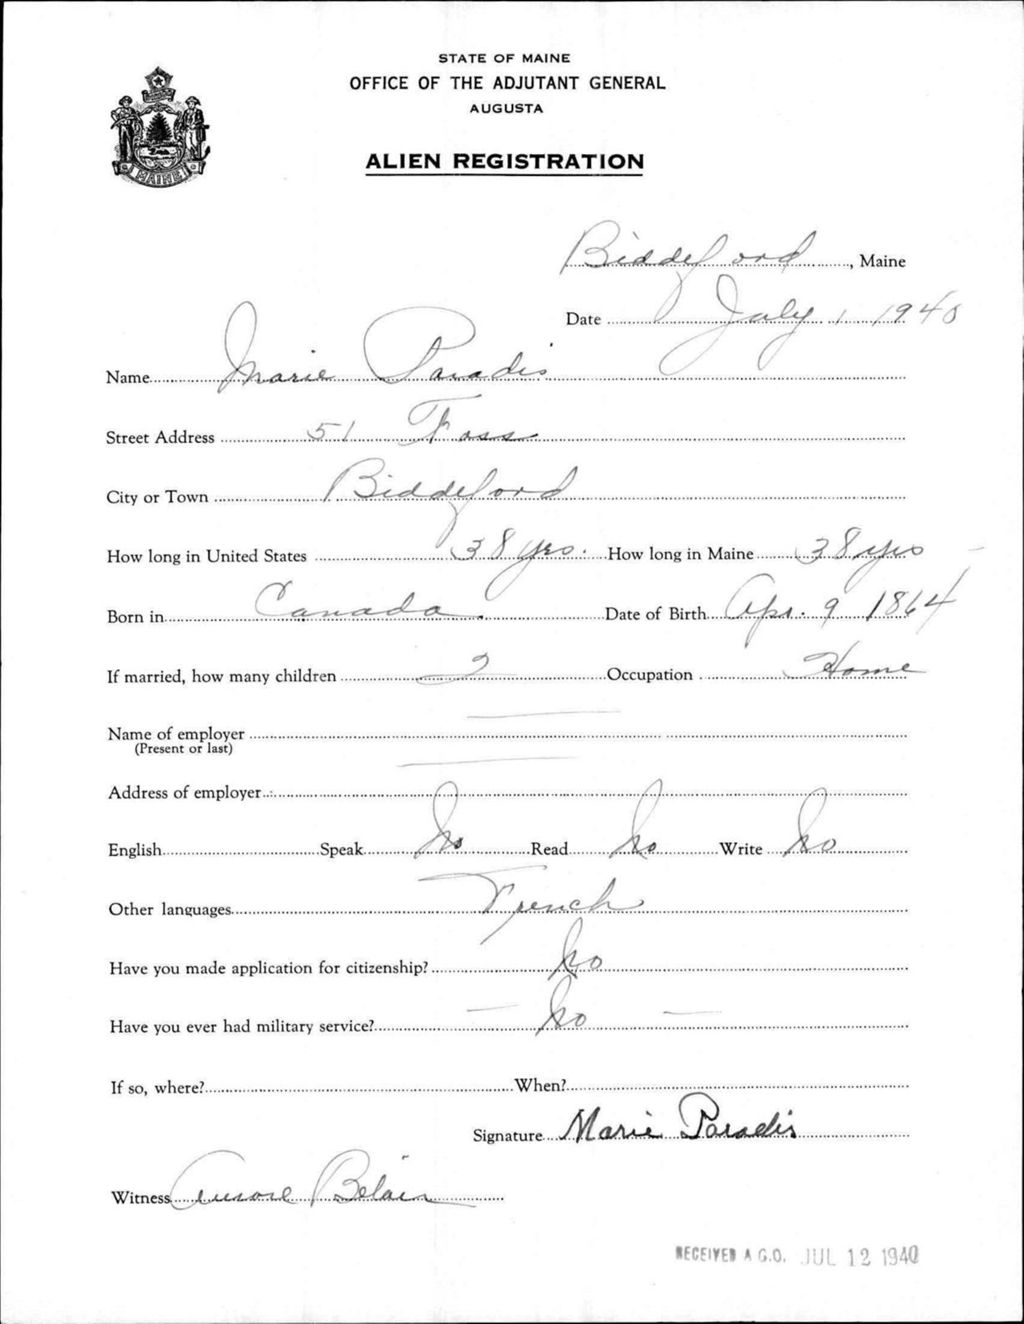 STATE OF MAINE
OFFICE OF THE ADJUTANT GENERAL
AUGUSTA
ALIEN REGISTRATION
MAINE
Biddeford, Maine
Date July 1, 1940
Name Marie Paradis
Street Address 51 Foss
City or Town Biddeford
How long in United States 38 yrs. How long in Maine 38 yrs
Born in Canada. Date of Birth Apr. 9 1864
If married, how many children 2 Occupation Home
Name of employer
(Present or last)
Address of employer
English Speak No Read No Write No
Other languages French
Have you made application for citizenship? No
Have you ever had military service? No
If so, where? When?
Signature Marie Paradis
Witness Aurore Belair
RECEIVED A.G.O. JUL 12 1940